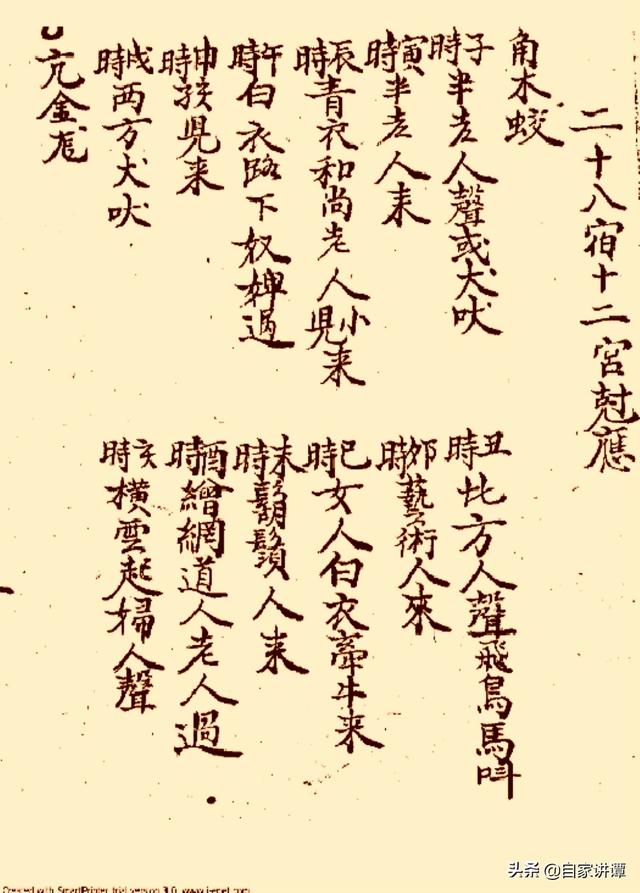 二十八宿十二宮尅應
角木蛟
子時半老人聲或犬吠
丑時北方人聲飛鳥馬叫
寅時半老人來
卯時藝術人來
辰時青衣和尚老人小児来
巳時女人白衣牽牛来
午時白衣路下奴婢過
未時鬍鬚人来
申時孩児来
酉時繒網道人老人過
戌時西方犬吠
亥時橫雲起婦人聲
亢金龙
Created with SmartPrinter trial version 3.0 www.i-enet.com
头条 @自家讲谭